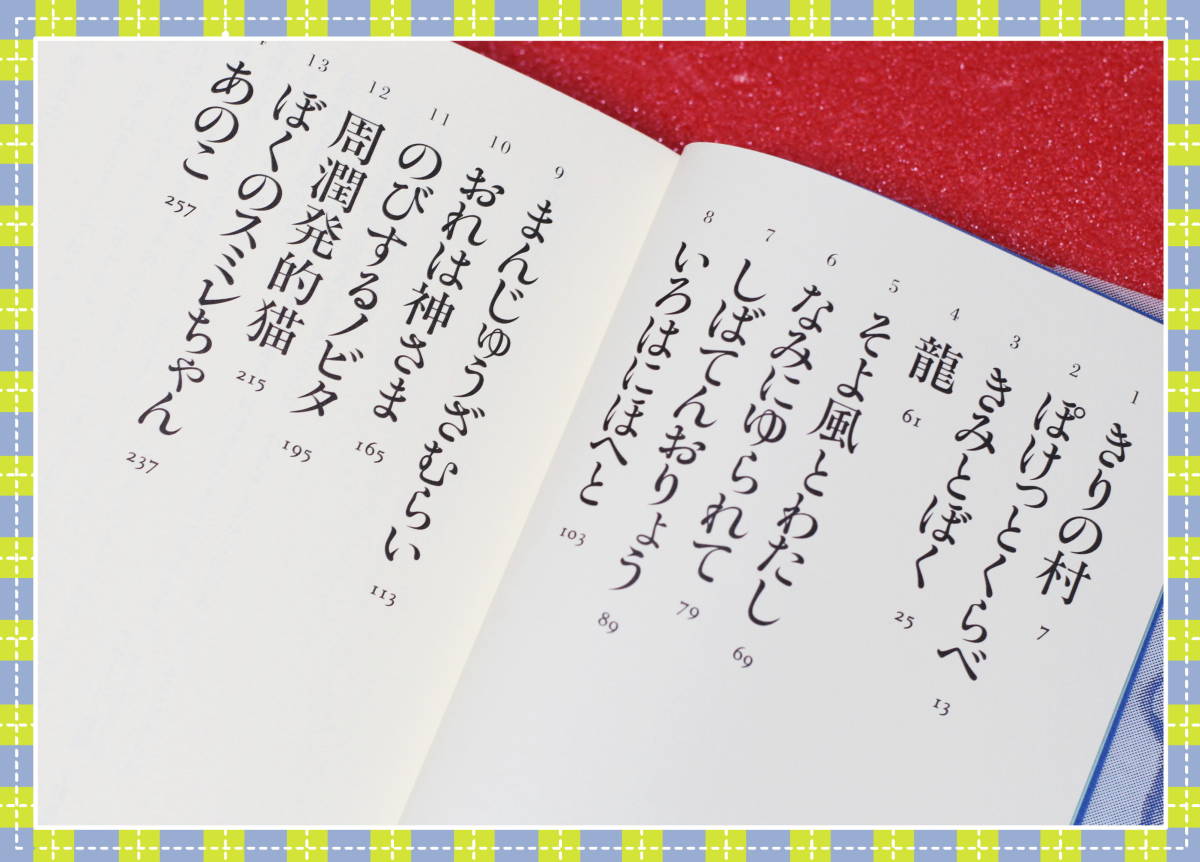 1 きりの村 7
2 ぽけっとくらべ 13
3 きみとぼく 25
4 龍 61
5 そよ風とわたし 69
6 なみにゆられて 79
7 しばてんおりょう 89
8 いろはにほへと 103
9 まんじゅうざむらい 113
10 おれは神さま 165
11 のびするノビタ 195
12 周潤発的猫 215
13 ぼくのスミレちゃん 237
あのこ 257